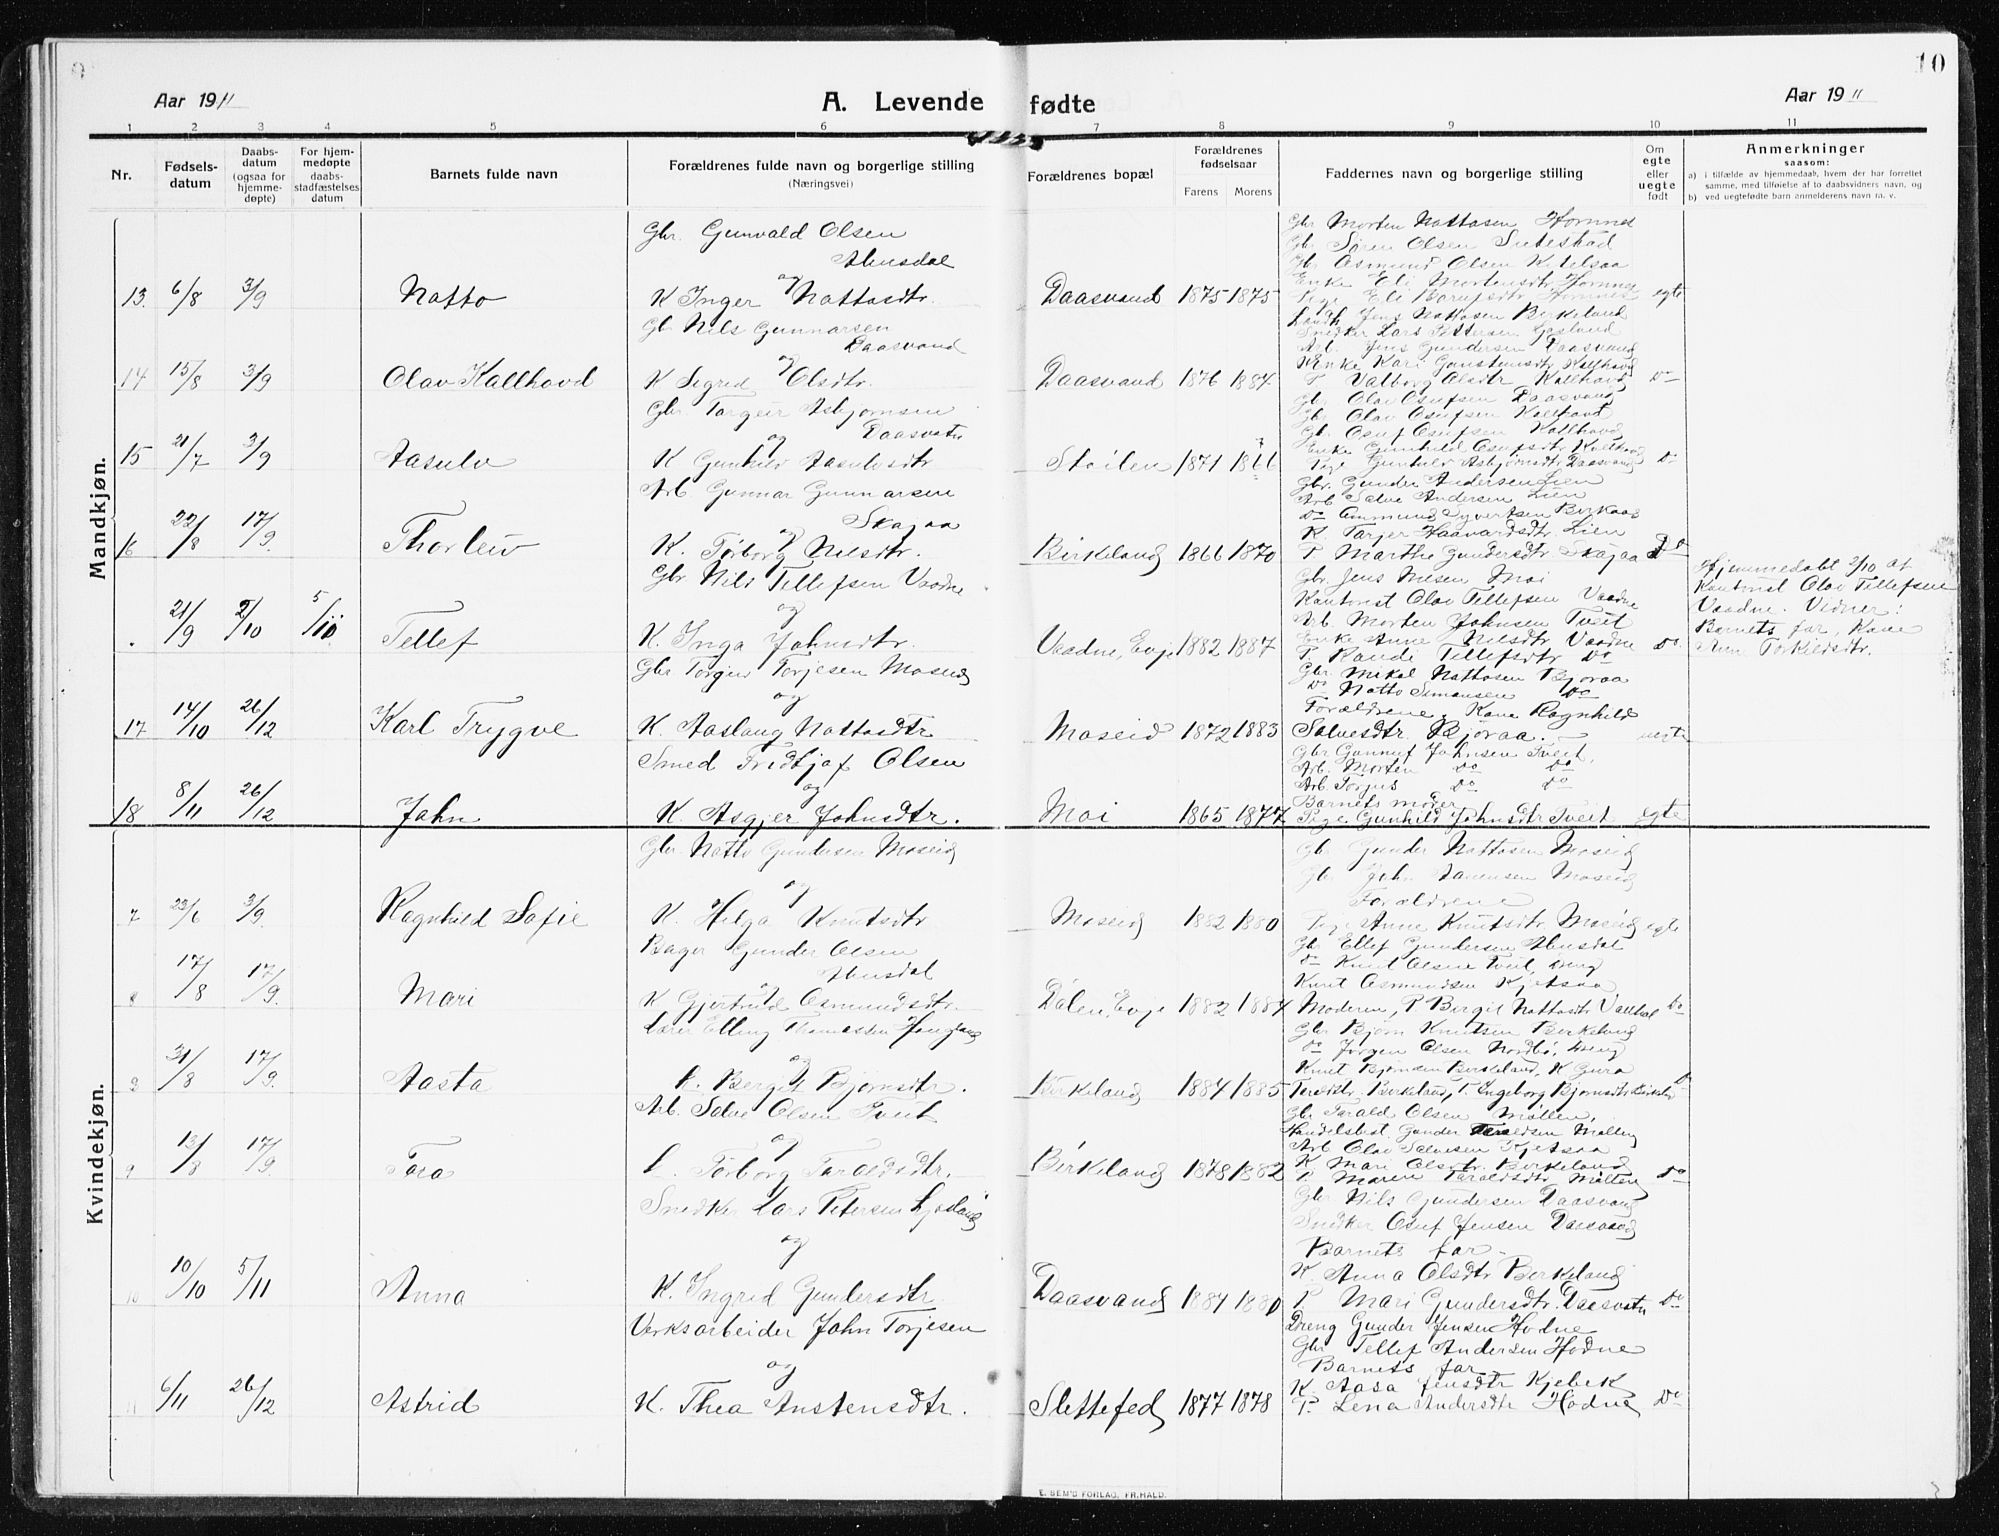 9
10
Aar 1911
A. Levende fødte
Aar 1911
1 2 3 4 5 6 7 8 9 10 11
Nr.
Fødsels-
datum
Daabs-
datum
(ogsaa for
hjemme-
døpte)
For hjem-
medøpte
daabs-
stadfæstelses
datum
Barnets fulde navn
Forældrenes fulde navn og borgerlige stilling
(Næringsvei)
Forældrenes bopæl
Forældrenes
fødselsaar
Farens Morens
Faddernes navn og borgerlige stilling
Om
egte
eller
uegte
født
Anmerkninger
saasom:
a) i tilfælde av hjemmedaab, hvem der har forrettet
samme, med tilføielse af to daabsvidners navn, og
b) ved uegtefødte barn anmelderens navn m. v.
Mandkjøn.
Gbr. Gunvald Olsen
og
13. 6/8 3/9 Natto K Inger Nattosdtr. Daasvand 1875 1875 egte
Gbr Morten Nattosen Hornnes
Gbr Søren Olsen
Gb Osmund Olsen Kjetelsaa
Enke Eli Mortensdtr Hornnes
Gb Nils Gunnarsen
Daasvand
og
14 15/8 3/9 Olav Kallhovd K Sigrid Olsdtr. Daasvand 1876 1884 Do
Jens Nattosen Birkeland
Snedker Lars Pettersen
Arb. Jens Gundersen Daasvand
Enke Kari Gunstensdtr Kallhovd
P Valborg Olsdtr Kallhovd
Gbr Targeir Asbjørnsen
Daasvatn
og
15 21/7 3/9 Aasulv K Gunhild Aasulvsdtr Støilen 1871 1866 Do
Gb Olav Osufsen Daasvand
Gb Olav Osufsen Kallhovd
Gb. Osuf Osufsen Kallhovd
Enke Gunhild Osufsdtr Kallhovd
Pige Gunhild Asbjørnsdtr Daasvand
Arb Gunnar Gunnarsen
Skajaa
og
16 22/8 17/9. Thorleiv K. Torborg Nilsdtr. Birkeland 1866 1870 Do
Gbr. Gunder Andersen Lien
Arb Salve Andersen Lien
Do Ommund Syvertsen Birkaas
K Tarjer Haavardsdtr. Lien
P. Marthe Gundersdtr Skajaa
Gbr Nils Tellefsen Vaadne
og
21/9 2/10 5/10. Tellef K. Inga Johnsdtr. Vaadne, Evje 1882 1887 Do.
Gbr. Jens Moi
Kantorist Olav Tellefsen Vaadne
Arb. Morten Johnsen Tveit
Enke Anne Nilsdtr Vaadne
P. Randi Tellefsdtr Do
Hjemmedøbt 2/10 af
Kantorist Olav Tellefsen
Vaadne. Vidner:
Barnets far, Kone
Ann Torkildsdtr.
Gbr Torgius Torjesen Moseid
og
17 14/10 26/12 Karl Trygve K. Aaslaug Nattosdtr Moseid 1872 1883 uegte
Gbr Mikal Nattosen Bjoraa
Do Natto Simonsen Do
Forældrene, Kone Ragnhild
Salvesdtr Bjoraa.
Smed Fridtjof Olsen
og
18 8/11 26/12 John K. Asgjer Johnsdtr. Moi 1865 1877 egte
Gbr Gunnuf Johnsen Tveit,
Arb. Morten Do Do
Arb Torjus Do Do
Barnets moder
Pige Gunhild Johnsdtr Tveit
Kvindekjøn.
Gbr Natto Gundersen Moseid
og
7 23/6 3/9. Ragnhild Sofie K. Helga Knutsdtr Moseid 1882 1880 egte
Gb Gunder Nattosen Moseid
Gbr John Moseid
Forældrene
Pige Anne Knutsdtr Moseid
Bager Gunder Olsen
og
8 17/8 17/9. Mari K Gjertrud Osmundsdtr. Dalen, Evje 1882 1884 Do
Gbr Ellef Gundersen
Do Knut Olsen Tveit, Dreng
Knut Osmundsen Kjetsaa
Moderen, P. Bergit Nattosdtr
Elling Thomassen
og
31/8 17/9. Aasta K. Bergit Bjornsdtr. Birkeland 1884 1885 Do
Gbr Bjorn Knutsen Birkeland
Do Jorgen Olsen Nordbø, Dreng
Knut Bjornsen Birkeland, K Guro
Birkeland, P. Ingeborg Bjornsdtr Birkeland
Arb. Salve Olsen Tveit
og
9 13/8 17/9. Tora K. Torborg Taraldsdtr. Birkeland 1878 1882 Do
Gb Tarald Olsen Mølten,
Handelsbest. Gunder Taraldsen Mølten
Arb Olav Salvesen Kjetsaa
K Mari Olsdtr. Birkeland
P. Maren Taraldsdtr Mølten
Snedker Lars Petersen
og
10 10/10 5/11 Anna K. Ingrid Gundersdtr. Daasvand 1884 1880 Do
Gbr Nils Gundersen Daasvand
Snedker Osuf Jensen Daasvand
Barnets far
K. Anna Olsdtr Birkeland
P. Mari Gundersdtr. Daasvatn
Verksarbeider John Torjesen
og
11 6/11 26/12 Astrid K. Thea Anstensdtr. Slettefed 1877 1878 Do
Dreng Gunder Jensen Hodne
Gbr Tellef Andersen Hodne
Barnets far
K. Aasa Jensdtr Kjebek
P. Lena Andersdtr Hodne
E. SEM'S FORLAG, FR.HALD.